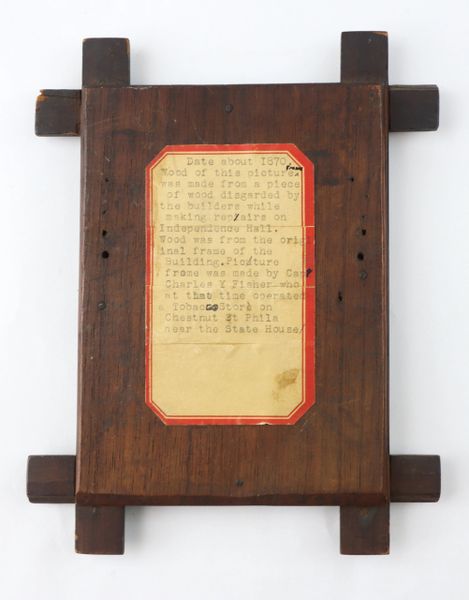 Date about 1870.
Wood of this picture frame
was made from a piece
of wood disgarded by
the builders while
making rep/airs on
Independence Hall.
Wood was from the orig
inal frame of the
Building. Pic/ture
frome was made by Capt
Charles Y Fisher who
at that time operated
a Tobacco Store on
Chestnut St Phila
near the State House/